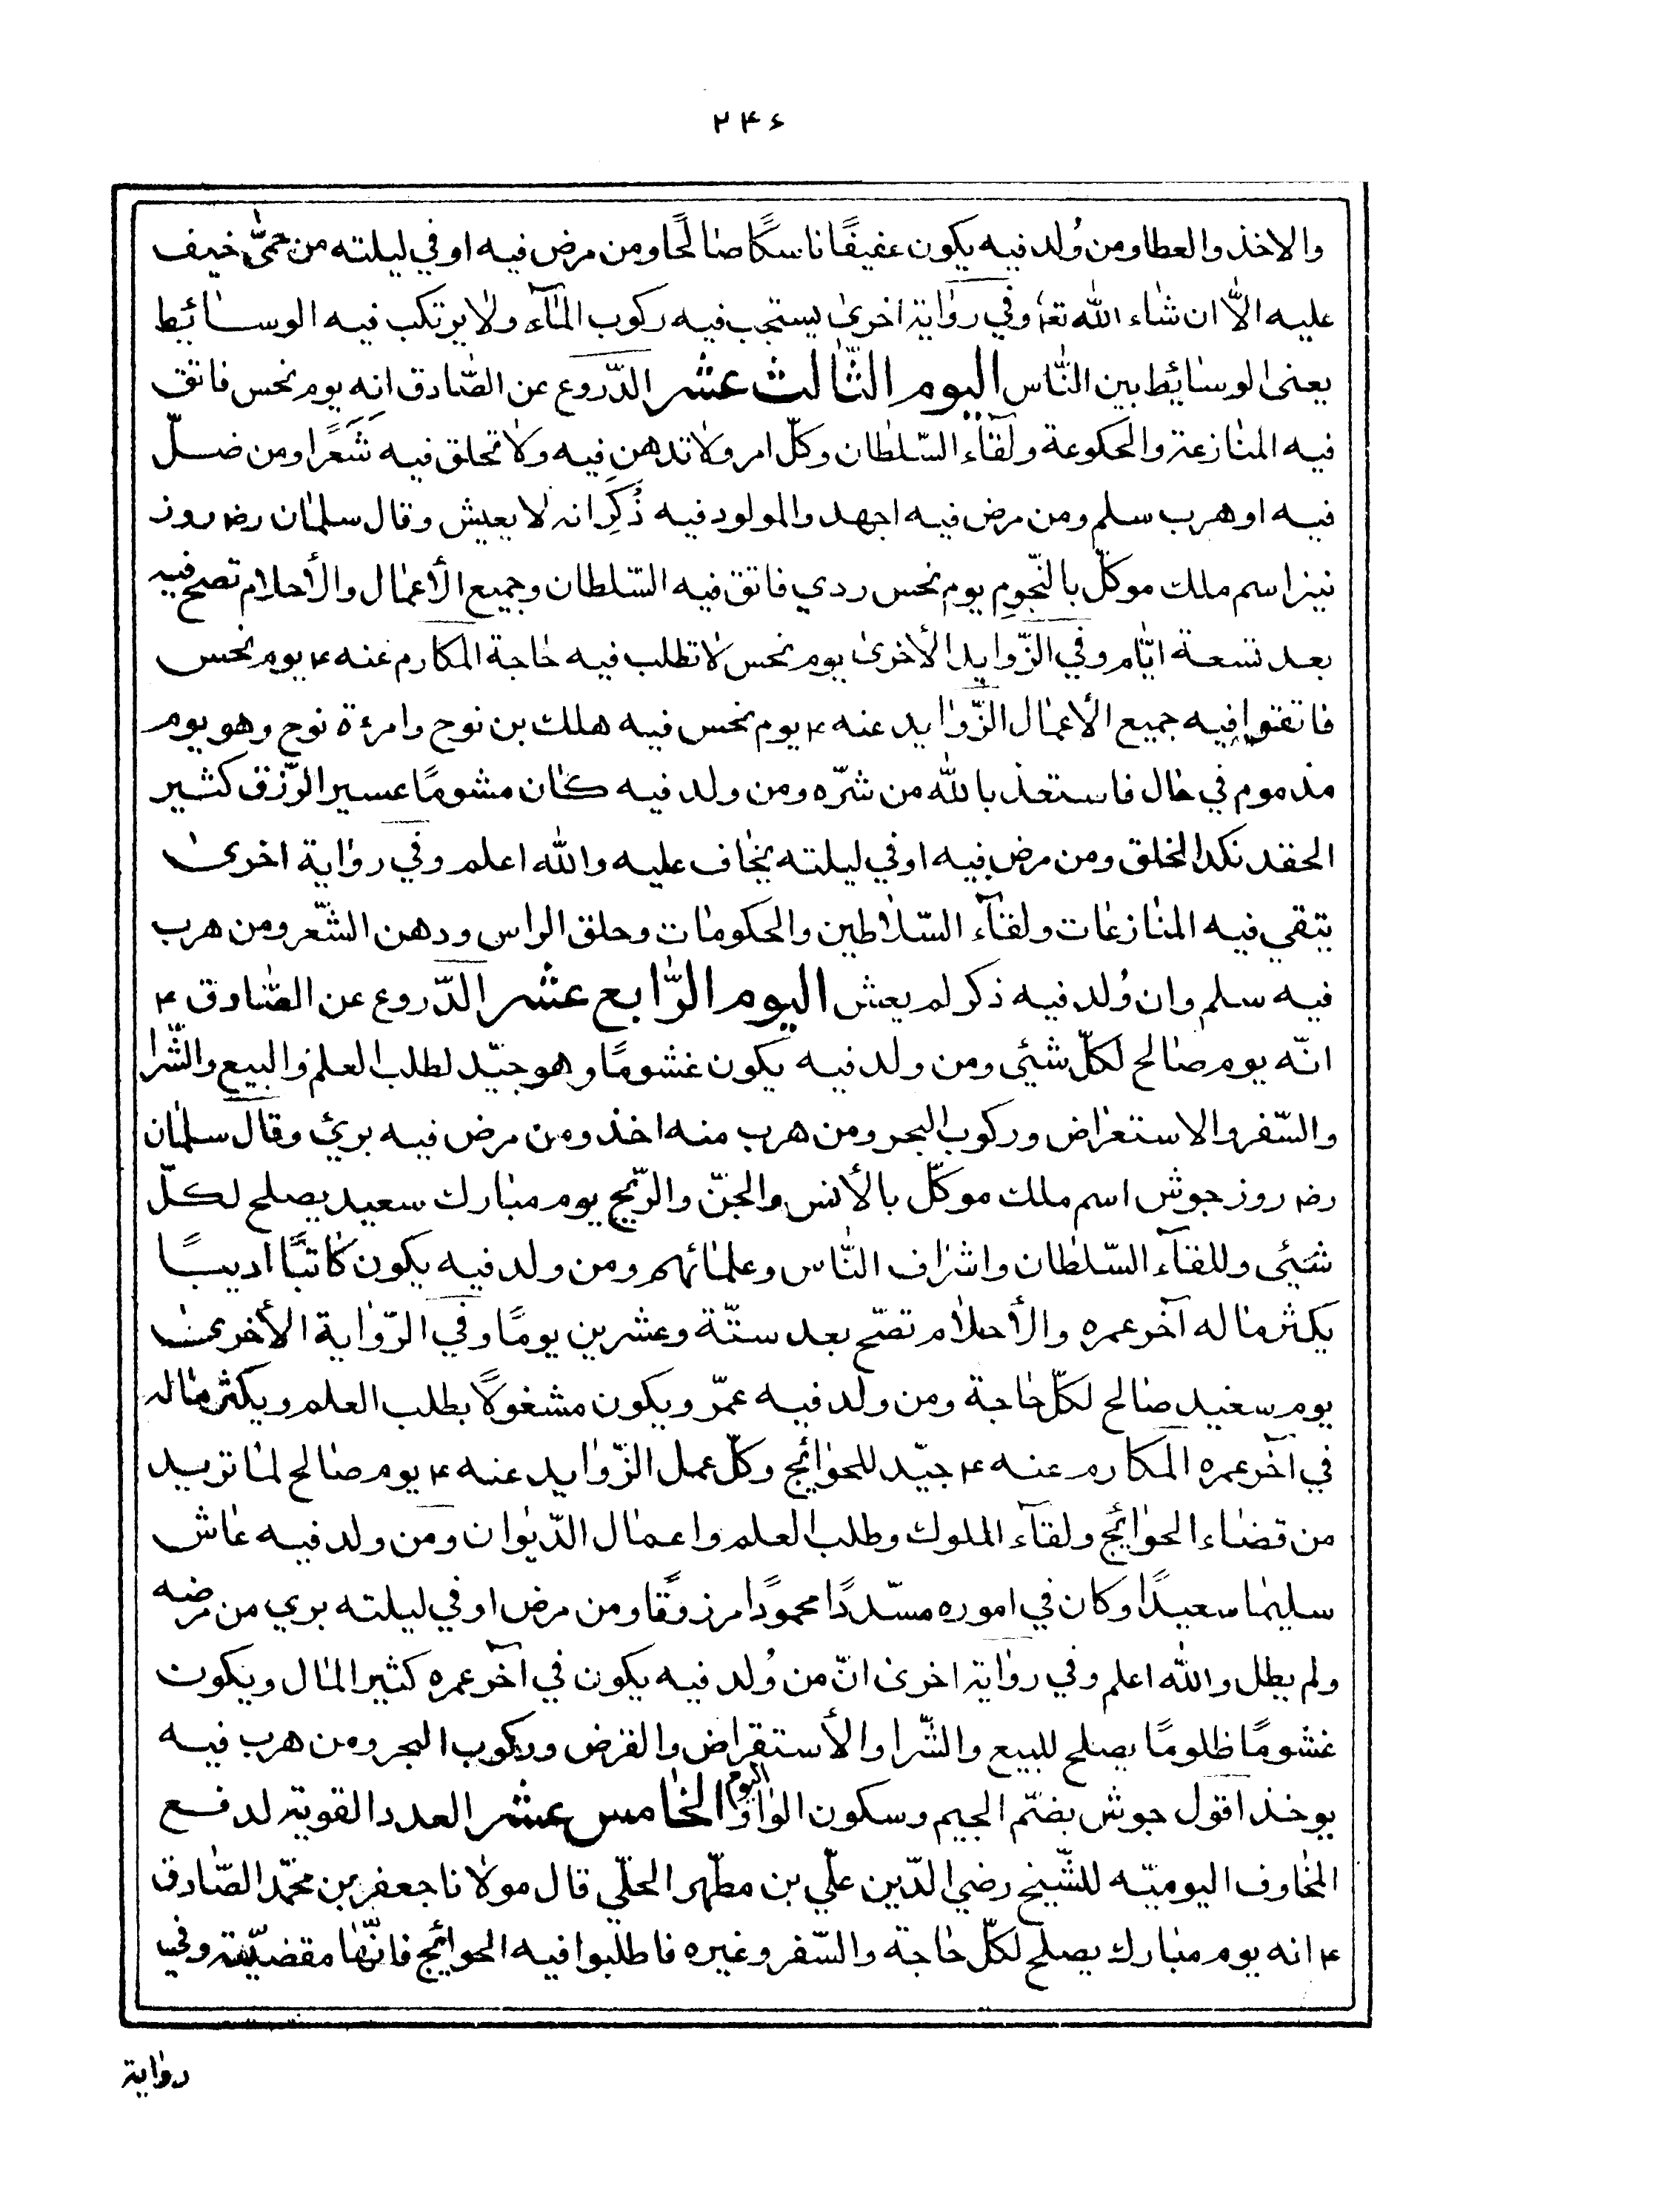 ۲۴۶
والاخذ والعطا ومن وُلد فيه يكون عفيفًا ناسكًا صالحًا ومن مرض فيه او في ليلته من حمّى خيف
عليه الاّ ان شاء الله تعا وفي رواية اخرى يستحب فيه ركوب المآء ولا يرتكب فيه الوسائيط
يعنى الوسائيط بين النّاس اليوم الثّالث عشر الدّروع عن الصّادق انه يوم نحس فاتق
فيه المنازعة والحكومة ولقآء السّلطان وكلّ امر ولا تدهن فيه ولا تحلق فيه شَعَرًا ومن ضلّ
فيه او هرب سلم ومن مرض فيه اجهد والمولود فيه ذُكِرَ انه لا يعيش وقال سلمان رض روز
تيز اسم ملك موكّل بالنّجوم يوم نحس ردي فاتق فيه السّلطان وجميع الأعمال والأحلام تصح فيه
بعد تسعة ايّام وفي الزّوايد الأخرى يوم نحس لا تطلب فيه حاجة المكارم عنه ع يوم نحس
فاتقوا فيه جميع الأعمال الزّوايد عنه ع يوم نحس فيه هلك بن نوح وامرءة نوح وهو يوم
مذموم في حال فاستعذ بالله من شرّه ومن ولد فيه كان مشومًا عسير الرّزق كثير
الحقد نكد الخلق ومن مرض فيه او في ليلته يخاف عليه والله اعلم وفي رواية اخرى
يتقي فيه المنازعات ولقآء السّلاطين والحكومات وحلق الراس ودهن الشّعر ومن هرب
فيه سلم وان وُلد فيه ذكر لم يعش اليوم الرّابع عشر الدّروع عن الصّادق ع
انّه يوم صالح لكلّ شيئ ومن ولد فيه يكون غشومًا وهو جيّد لطلب العلم والبيع والشّرا
والسّفر والاستعراض وركوب البحر ومن هرب منه اخذ ومن مرض فيه برئ وقال سلمان
رض روز جوش اسم ملك موكّل بالأنس والجنّ والرّيح يوم مبارك سعيد يصلح لكلّ
شيئ وللقآء السّلطان واشراف النّاس وعلمائهم ومن ولد فيه يكون كاتبًا اديبًا
يكثر ماله آخر عمره والأحلام تصحّ بعد ستّة وعشرين يومًا وفي الرّواية الأخرى
يوم سعيد صالح لكلّ حاجة ومن ولد فيه عمّر ويكون مشغولًا بطلب العلم ويكثر ماله
في آخر عمره المكارم عنه ع جيّد للحوائج وكلّ عمل الزّوايد عنه ع يوم صالح لما تريد
من قضاء الحوائج ولقآء الملوك وطلب العلم واعمال الدّيوان ومن ولد فيه عاش
سليما سعيدًا وكان في اموره مسدّدًا محمودًا مرزوقًا ومن مرض او في ليلته بري من مرضه
ولم يطل والله اعلم وفي رواية اخرى انّ من وُلد فيه يكون في آخر عمره كثير المال ويكون
غشومًا ظلومًا يصلح للبيع والشّرا والأستقراض والقرض وركوب البحر ومن هرب فيه
يوخذ اقول جوش بضمّ الجيم وسكون الواو اليوم الخامس عشر العدد القوية لدفع
المخاوف اليوميّه للشّيخ رضي الدّين عليّ بن مطهّر الحلّي قال مولانا جعفر بن محمّد الصّادق
ع انه يوم مبارك يصلح لكلّ حاجة والسّفر وغيره فاطلبوا فيه الحوائج فانّها مقضيّة وفي
رواية